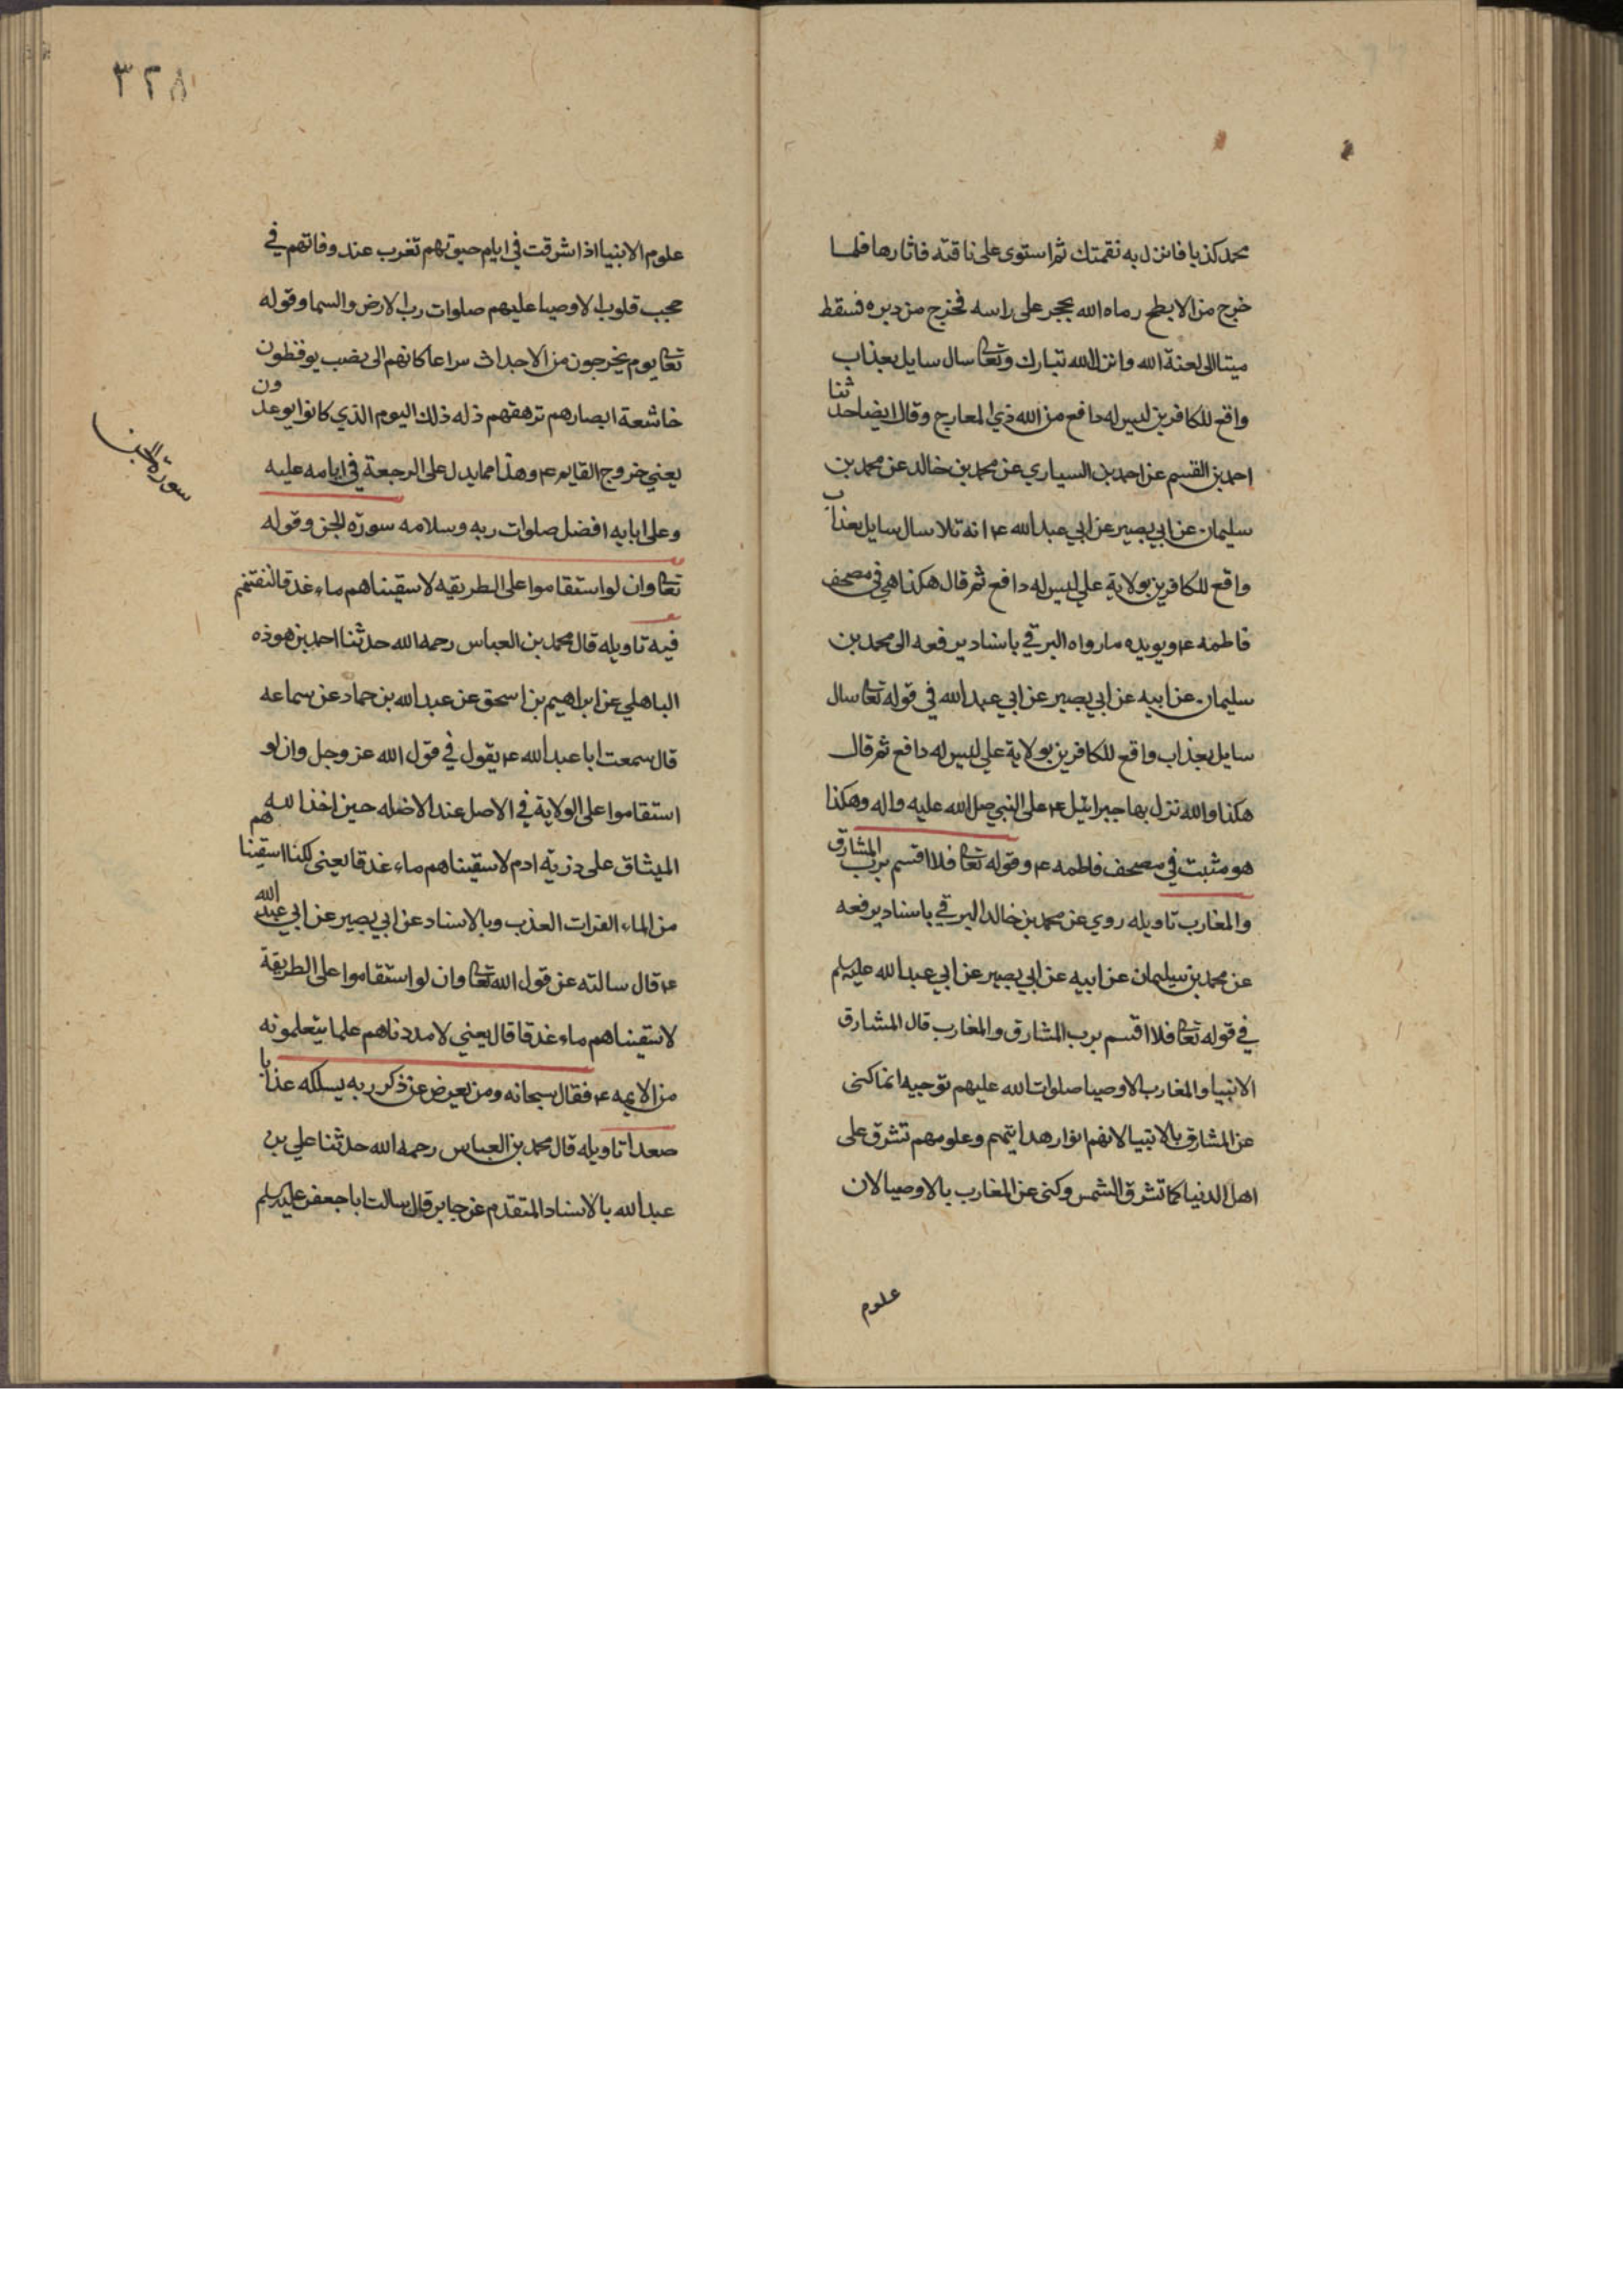 محمد كذبا فانزل به نقمتك ثم استوى على ناقته فاثارها فلما
خرج من الابطح رماه الله بحجر على راسه فخرج من دبره فسقط
ميتا الى لعنة الله وانزل الله تبارك وتعا سال سايل بعذاب
واقع للكافرين ليس له دافع من الله ذي المعارج وقال ايضا حدثنا
احمد بن القسم عن احمد بن السياري عن محمد بن خالد عن محمد بن
سليمان عن ابي بصير عن ابي عبد الله ع انه تلا سال سايل بعذاب
واقع للكافرين بولاية علي ليس له دافع ثم قال هكذا هي في مصحف
فاطمه ع ويويده ما رواه البرقي باسناد يرفعه الى محمد بن
سليمان عن ابيه عن ابي بصير عن ابي عبد الله في قوله تعا سال
سايل بعذاب واقع للكافرين بولاية علي ليس له دافع ثم قال
هكذا والله نزل بها جبرائيل ع على النبي صلى الله عليه واله وهكذا
هو مثبت في مصحف فاطمه ع وقوله تعا فلا اقسم برب المشارق
والمغارب تاويله روي عن محمد بن خالد البرقي باسناد يرفعه
عن محمد بن سليمان عن ابيه عن ابي بصير عن ابي عبد الله عليه سلم
في قوله تعا فلا اقسم برب المشارق والمغارب قال المشارق
الانبيا والمغارب الاوصيا صلوات الله عليهم توجيه انما كنى
عن المشارق بالانبيا لانهم انوار هدايتهم وعلومهم تشرق على
اهل الدنيا كما تشرق الشمس وكنى عن المغارب بالاوصيا لان
علوم
٣٢٨
علوم الانبيا اذا اشرقت في ايام حيوتهم تغرب عند وفاتهم في
حجب قلوب الاوصيا عليهم صلوات رب الارض والسما وقوله
تعا يوم يخرجون من الاجداث سراعا كانهم الى نصب يوفظون
خاشعة ابصارهم ترهقهم ذله ذلك اليوم الذي كانوا يوعدون
يعني خروج القايم ع وهذا مما يدل على الرجعة في ايامه عليه
وعلى ابايه افضل صلوات ربه وسلامه سورة الجن وقوله
سورة الجن
تعا وان لو استقاموا على الطريقه لاسقيناهم ماء غدقا لنفتنهم
فيه تاويله قال محمد بن العباس رحمه الله حدثنا احمد بن هوذه
الباهلي عن ابراهيم بن اسحق عن عبد الله بن حماد عن سماعه
قال سمعت ابا عبد الله ع يقول في قول الله عز وجل وان لو
استقاموا على الولاية في الاصل عند الاضله حين اخذ الله
الميثاق على ذرية ادم لاسقيناهم ماء غدقا يعني لكنا اسقيناهم
من الماء الفرات العذب وبالاسناد عن ابي بصير عن ابي عبد الله
ع قال سالته عن قول الله تعا وان لو استقاموا على الطريقة
لاسقيناهم ماء غدقا قال يعني لامددناهم علما يتعلمونه
من الايمه ع فقال سبحانه ومن يعرض عن ذكر ربه يسلكه عذابا
صعدا تاويله قال محمد بن العباس رحمه الله حدثنا علي بن
عبد الله بالاسناد المتقدم عن جابر قال سالت ابا جعفر عليه سلم